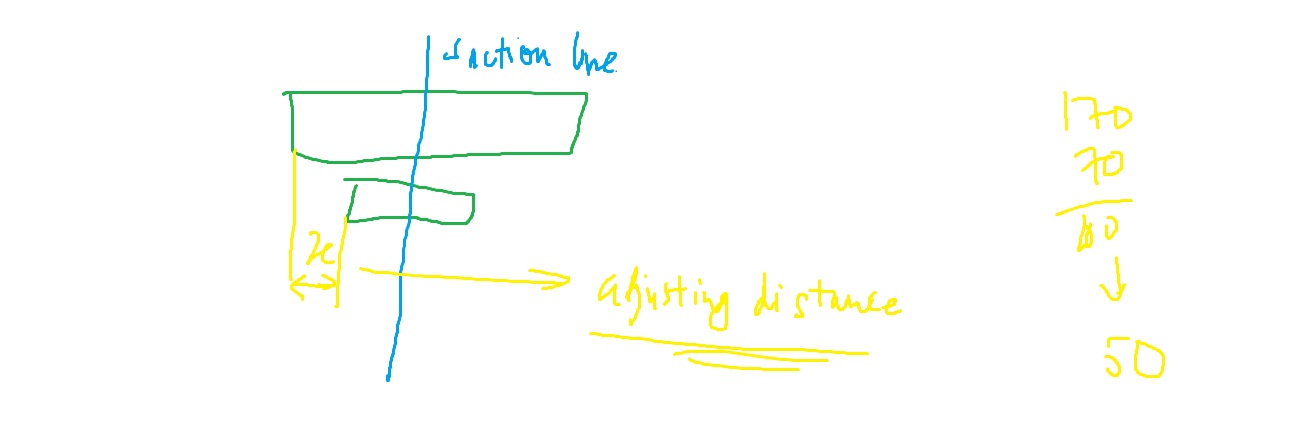 Suction line
x
adjusting distance
170
70
50